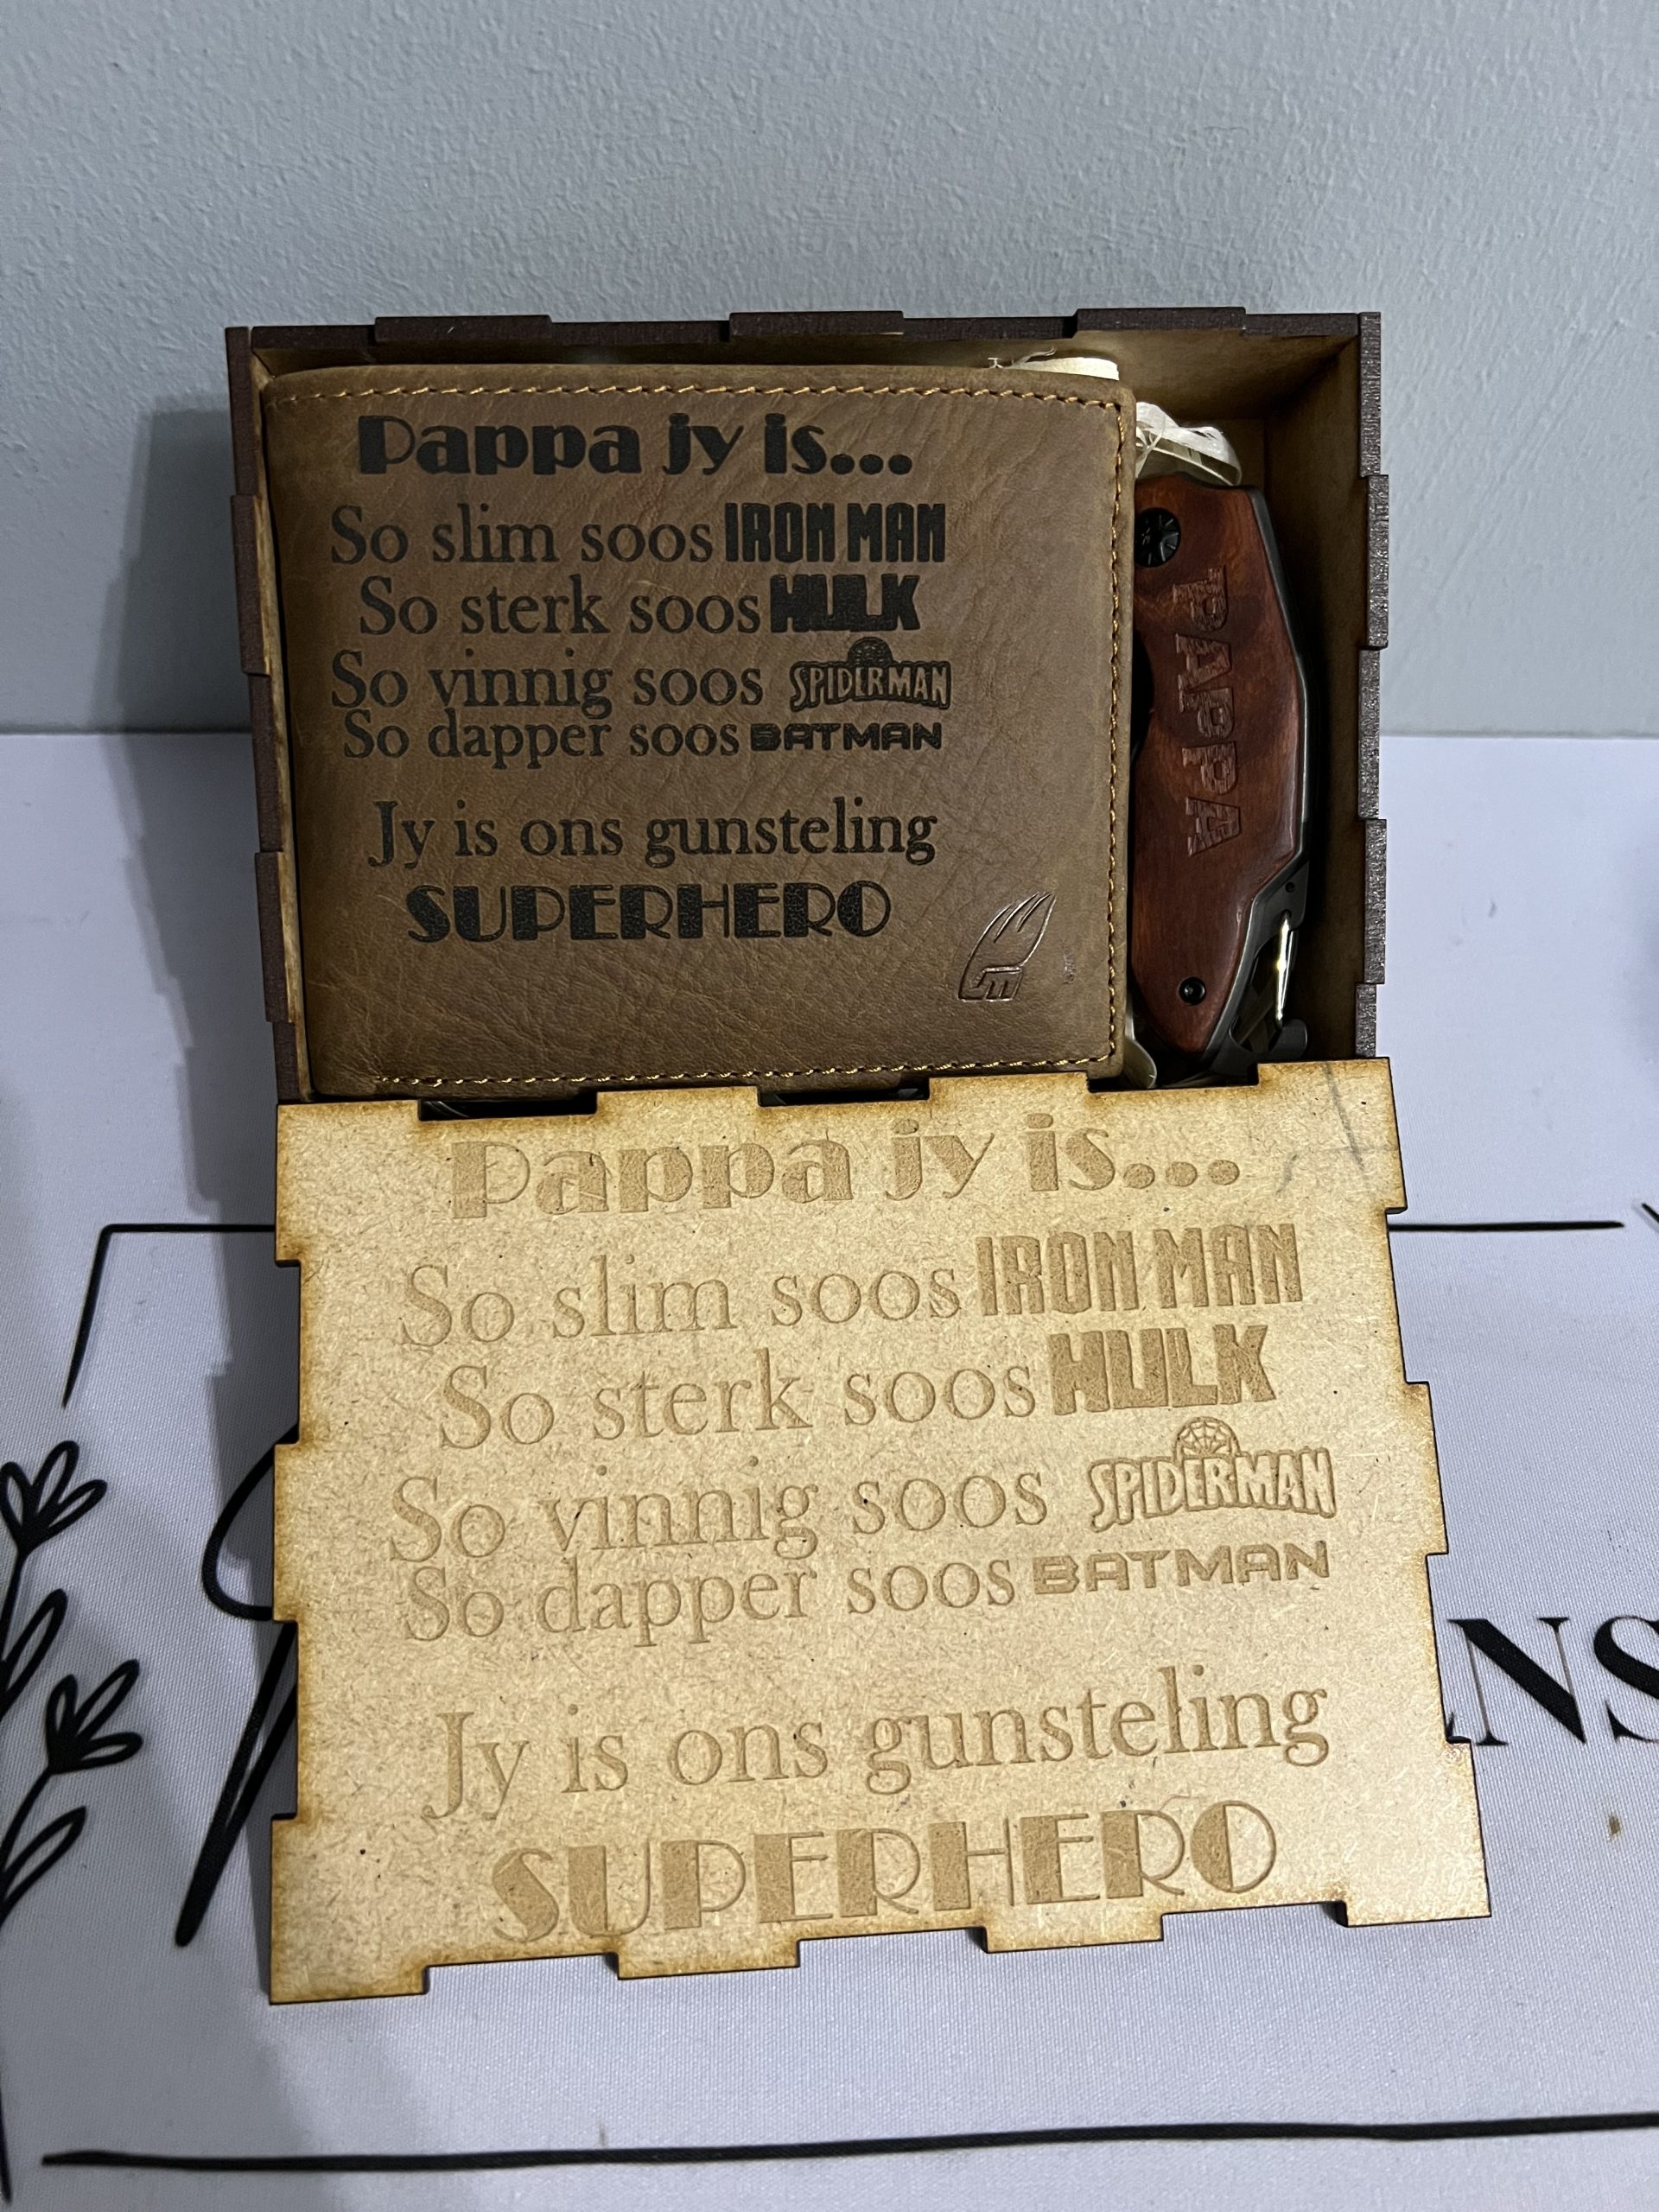 Pappa jy is...
So slim soos IRON MAN
So sterk soos HULK
So vinnig soos SPIDERMAN
So dapper soos BATMAN
Jy is ons gunsteling
SUPERHERO
PAPPA
Pappa jy is...
So slim soos IRON MAN
So sterk soos HULK
So vinnig soos SPIDERMAN
So dapper soos BATMAN
Jy is ons gunsteling
SUPERHERO